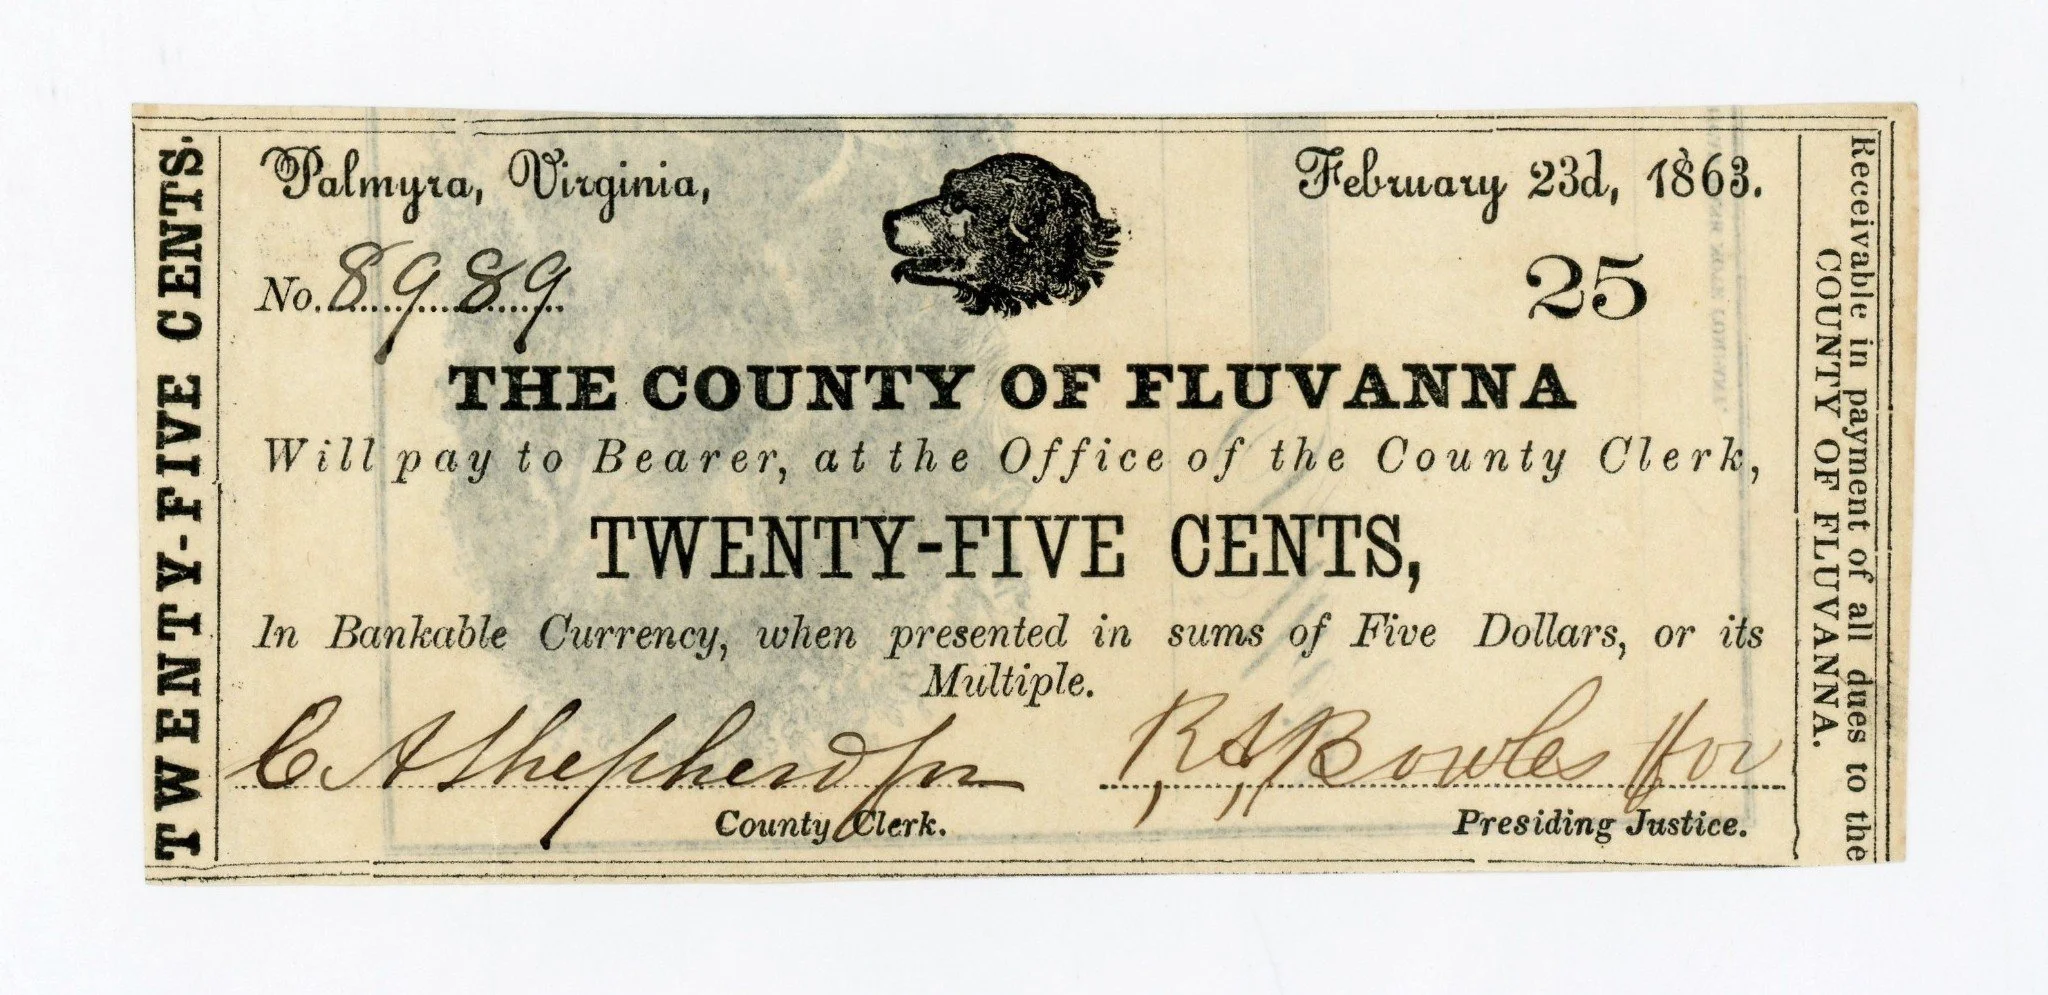 TWENTY-FIVE CENTS.
Palmyra, Virginia,
February 23d, 1863.
No. 8989
25
THE COUNTY OF FLUVANNA
Will pay to Bearer, at the Office of the County Clerk,
TWENTY-FIVE CENTS,
In Bankable Currency, when presented in sums of Five Dollars, or its
Multiple.
C A Shepherd jr
R, A, Bowles
County Clerk.
Presiding Justice.
Receivable in payment of all dues to the
COUNTY OF FLUVANNA.